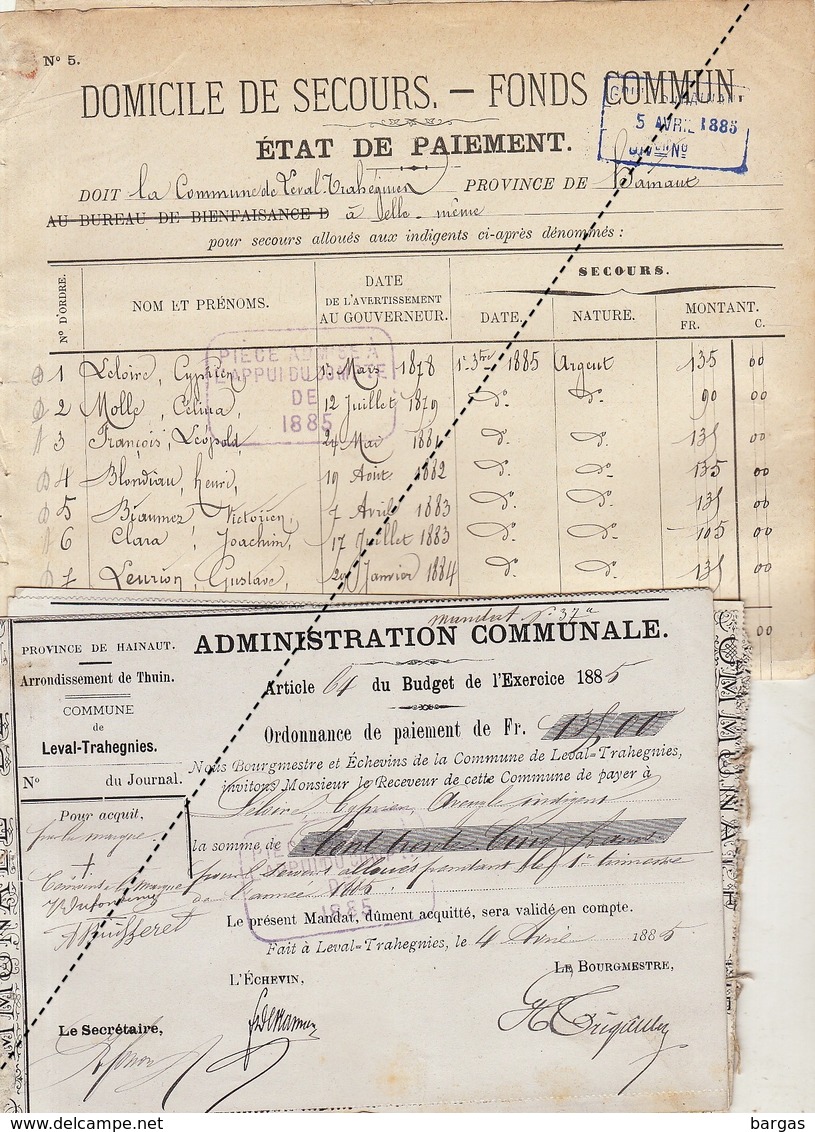 Nº 5.
DOMICILE DE SECOURS. — FONDS COMMUN
5 AVRIL 1885
ÉTAT DE PAIEMENT.
DOIT la Commune de Leval-Trahegnies PROVINCE DE Hainaut
AU BUREAU DE BIENFAISANCE D à elle-même
pour secours alloués aux indigents ci-après dénommés :
Nº D'ORDRE. NOM ET PRÉNOMS. DATE DE L'AVERTISSEMENT AU GOUVERNEUR. SECOURS. DATE. NATURE. MONTANT. FR. C.
PIÈCE ADMISE À L'APPUI DU COMPTE DE 1885
1 Leloire, Cyprien, Mars 1878 1885 Argent 135 00
2 Molle, Célina, 12 Juillet 1879 dº dº 90 00
3 François, Léopold, 24 Mai 1881 dº dº 135 00
4 Blondiau, Henri, 19 Août 1882 dº dº 135 00
5 Beaumez, Victorien, 7 Avril 1883 dº dº 135 00
6 Clara, Joachim, 17 Juillet 1883 dº dº 105 00
7 Leurion, Gustave, 29 Janvier 1884 dº dº 135 00
00
mandat nº 37a
PROVINCE DE HAINAUT.
Arrondissement de Thuin.
COMMUNE
de
Leval-Trahegnies.
Nº du Journal.
Pour acquit,
par la marque
+
Témoins de la marque
ADMINISTRATION COMMUNALE.
Article 64 du Budget de l'Exercice 1885
Ordonnance de paiement de Fr. 135,00
Nous Bourgmestre et Échevins de la Commune de Leval-Trahegnies,
invitons Monsieur le Receveur de cette Commune de payer à
Leloire, Cyprien, Aveugle indigent
la somme de Cent trente-cinq francs
pour secours alloués pendant le 1er trimestre
de l'année 1885.
1885
Le présent Mandat, dûment acquitté, sera validé en compte.
Fait à Leval-Trahegnies, le 4 Avril 1885.
L'ÉCHEVIN,
LE BOURGMESTRE,
Le Secrétaire,
COMMUNALE
bargas